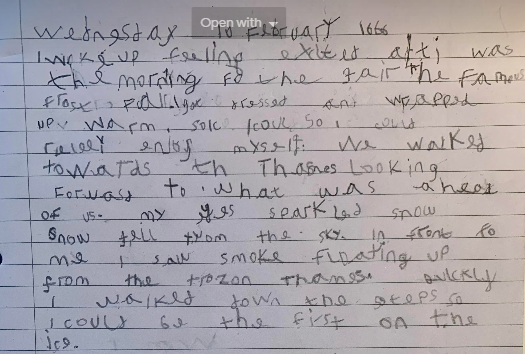 Open with
Wednesday 10 February 1666
I woke up feeling exited afti was
the morning fo the fair the famous
frost dressed and wrapped
up warm. so I could
relley enjoy myself. We walked
towards th Thames Looking
Forward to what was ahead
of us. my yes sparkled snow
Snow fell from the sky. in front fo
me I saw smoke floating up
from the frozon Thamss quickly
I walked down the steps so
I could be the first on the
Ice.